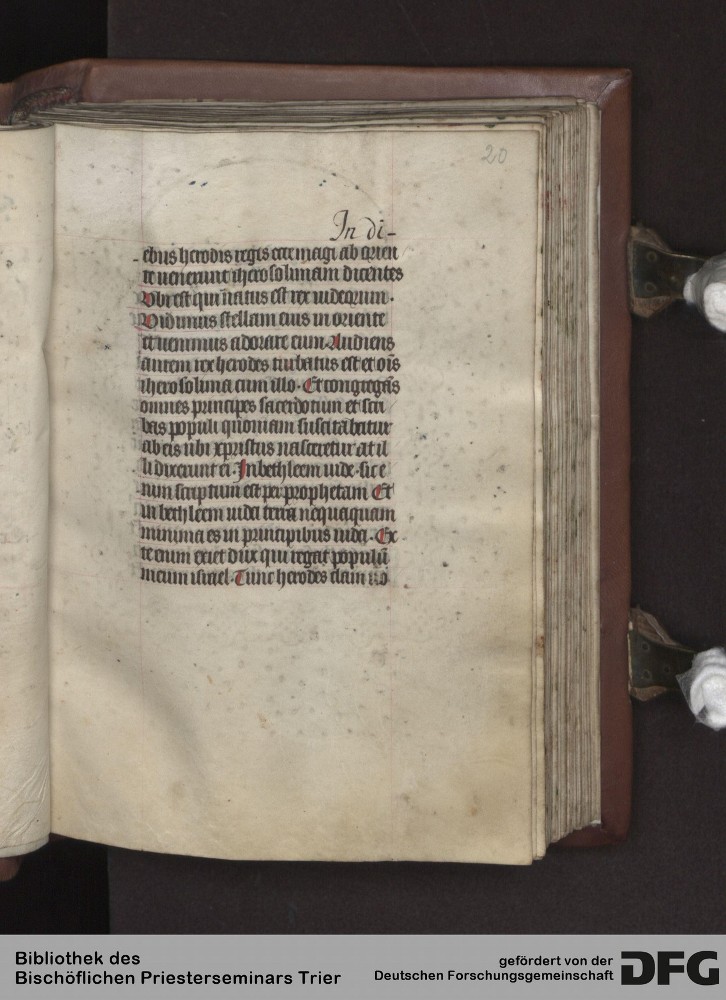 20
In di-
ebus herodis regis ecce magi ab orien
te uenerunt iherosolimam dicentes
Vbi est qui natus est rex iudeorum.
Vidimus stellam eius in oriente
et uenimus adorare eum. Audiens
autem rex herodes turbatus est et oīs
iherosolima cum illo. Et congregās
omnes principes sacerdotum et scri
bas populi
ab eis ubi xpristus nasceretur at il
li dixerunt ei. In bethleem iude. sic e
nim scriptum est per prophetam Et
tu bethleem iuda terra nequaquam
minima es in principibus iuda. Ex
te enim exiet dux qui regat populū
meum israel. Tunc herodes clam uo
Bibliothek des
Bischöflichen Priesterseminars Trier
gefördert von der
Deutschen Forschungsgemeinschaft
DFG